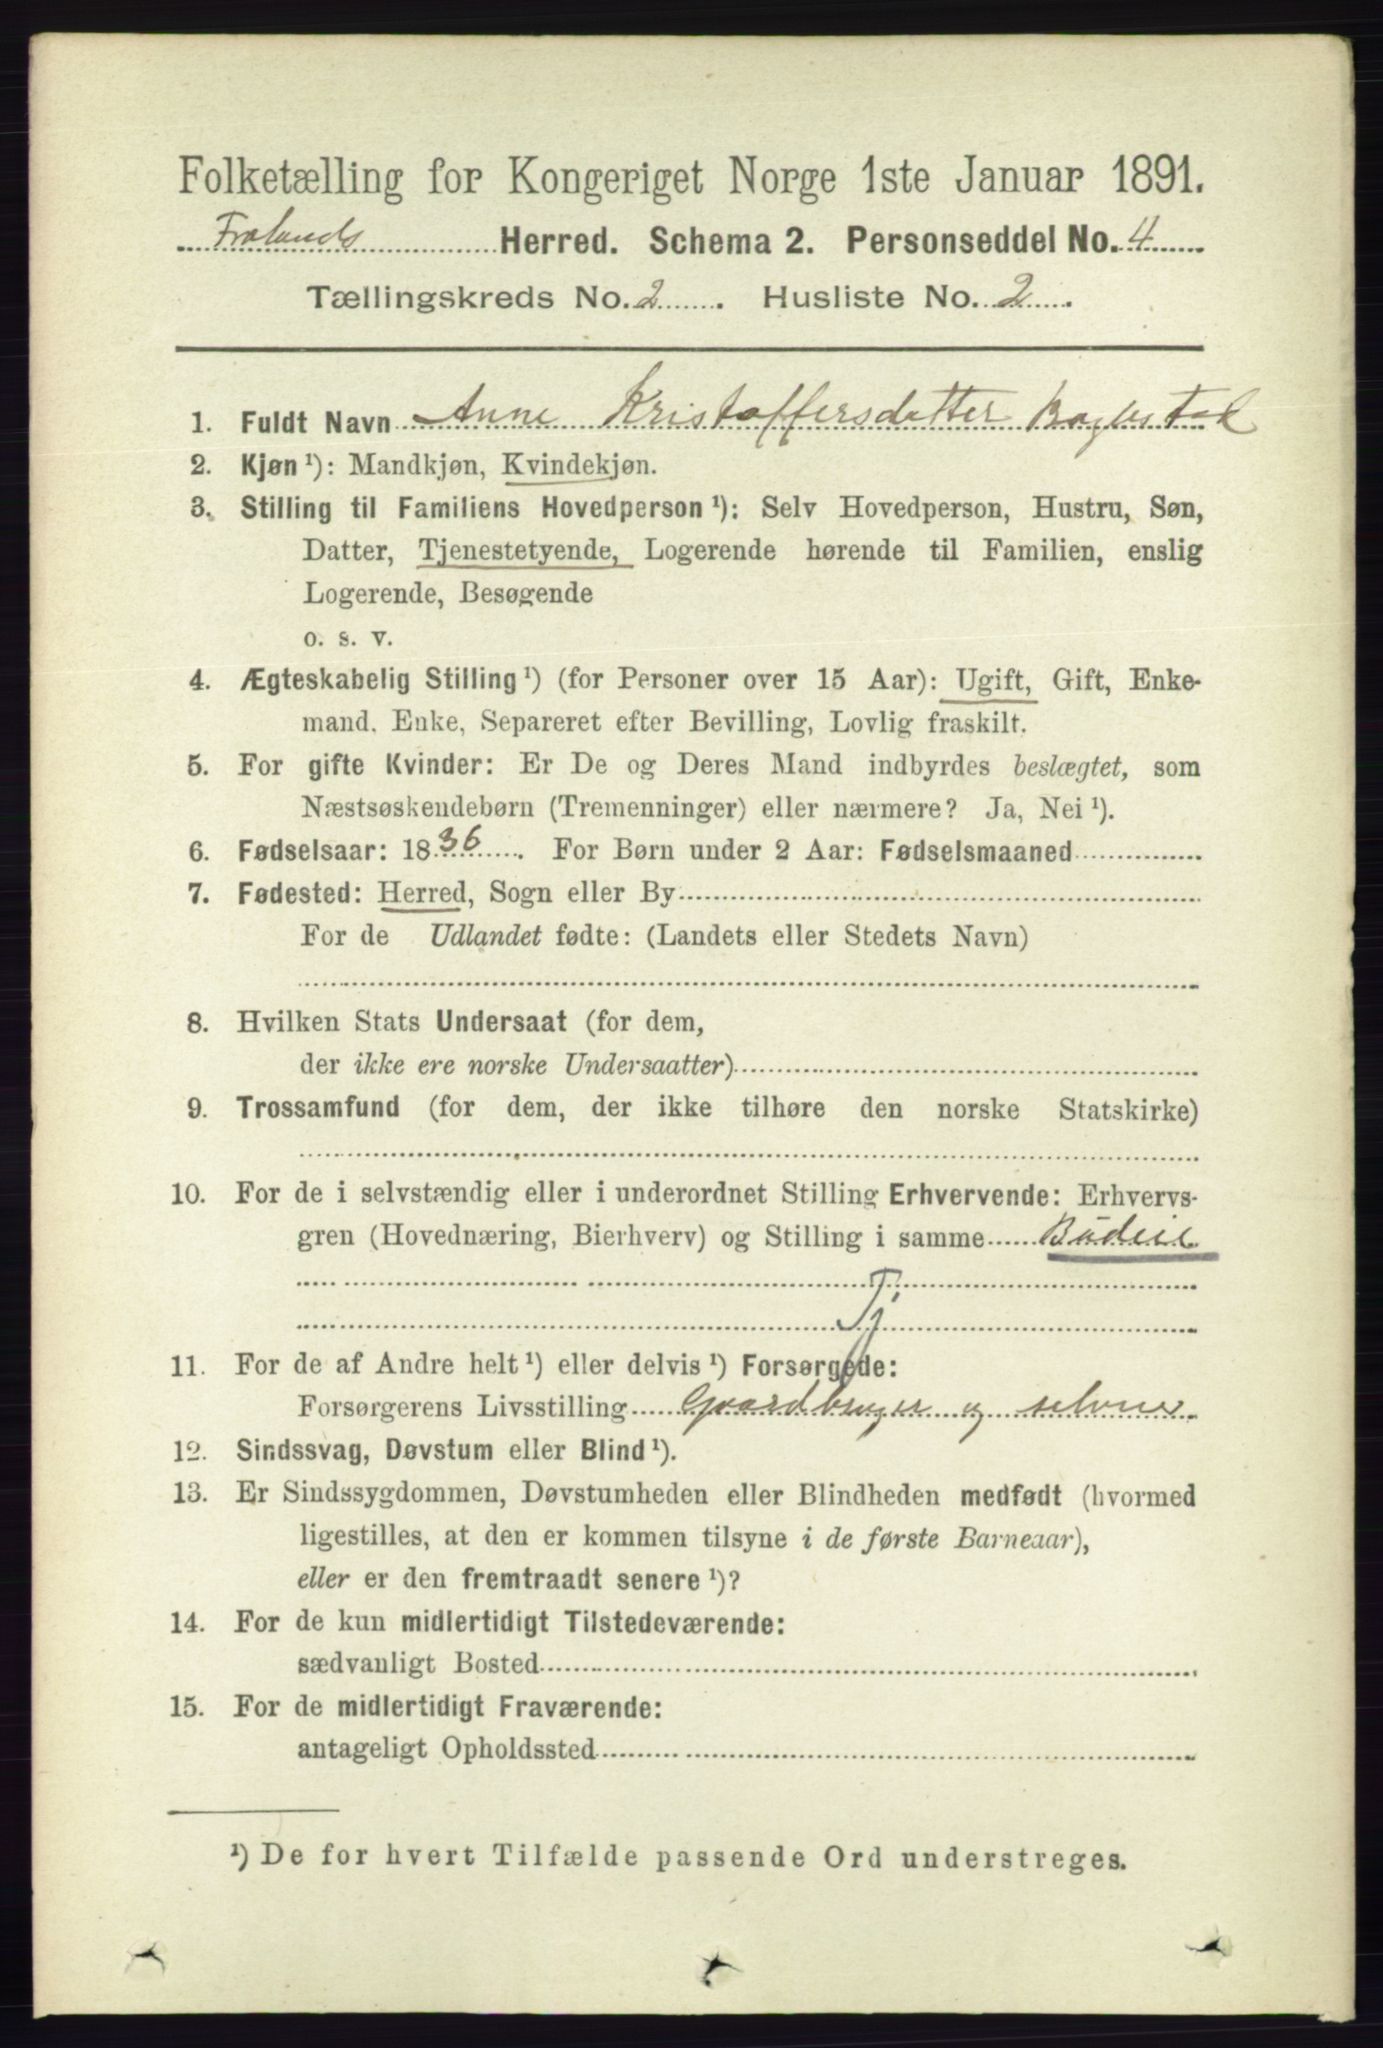 Folketælling for Kongeriget Norge 1ste Januar 1891.
Frolands Herred. Schema 2. Personseddel No. 4
Tællingskreds No. 2. Husliste No. 2.
1. Fuldt Navn Anne Kristoffersdatter
2. Kjøn ¹): Mandkjøn, Kvindekjøn.
3. Stilling til Familiens Hovedperson ¹): Selv Hovedperson, Hustru, Søn,
Datter, Tjenestetyende, Logerende hørende til Familien, enslig
Logerende, Besøgende
o. s. v.
4. Ægteskabelig Stilling ¹) (for Personer over 15 Aar): Ugift, Gift, Enke-
mand, Enke, Separeret efter Bevilling, Lovlig fraskilt.
5. For gifte Kvinder: Er De og Deres Mand indbyrdes beslægtet, som
Næstsøskendebørn (Tremenninger) eller nærmere? Ja, Nei ¹).
6. Fødselsaar: 1836. For Børn under 2 Aar: Fødselsmaaned
7. Fødested: Herred, Sogn eller By
For de Udlandet fødte: (Landets eller Stedets Navn)
8. Hvilken Stats Undersaat (for dem,
der ikke ere norske Undersaatter)
9. Trossamfund (for dem, der ikke tilhøre den norske Statskirke)
10. For de i selvstændig eller i underordnet Stilling Erhvervende: Erhvervs-
gren (Hovednæring, Bierhverv) og Stilling i samme Budeie
Tj
11. For de af Andre helt ¹) eller delvis ¹) Forsørgede:
Forsørgerens Livsstilling Gaardbruger og selveier
12. Sindssvag, Døvstum eller Blind ¹).
13. Er Sindssygdommen, Døvstumheden eller Blindheden medfødt (hvormed
ligestilles, at den er kommen tilsyne i de første Barneaar),
eller er den fremtraadt senere ¹)?
14. For de kun midlertidigt Tilstedeværende:
sædvanligt Bosted
15. For de midlertidigt Fraværende:
antageligt Opholdssted
¹) De for hvert Tilfælde passende Ord understreges.